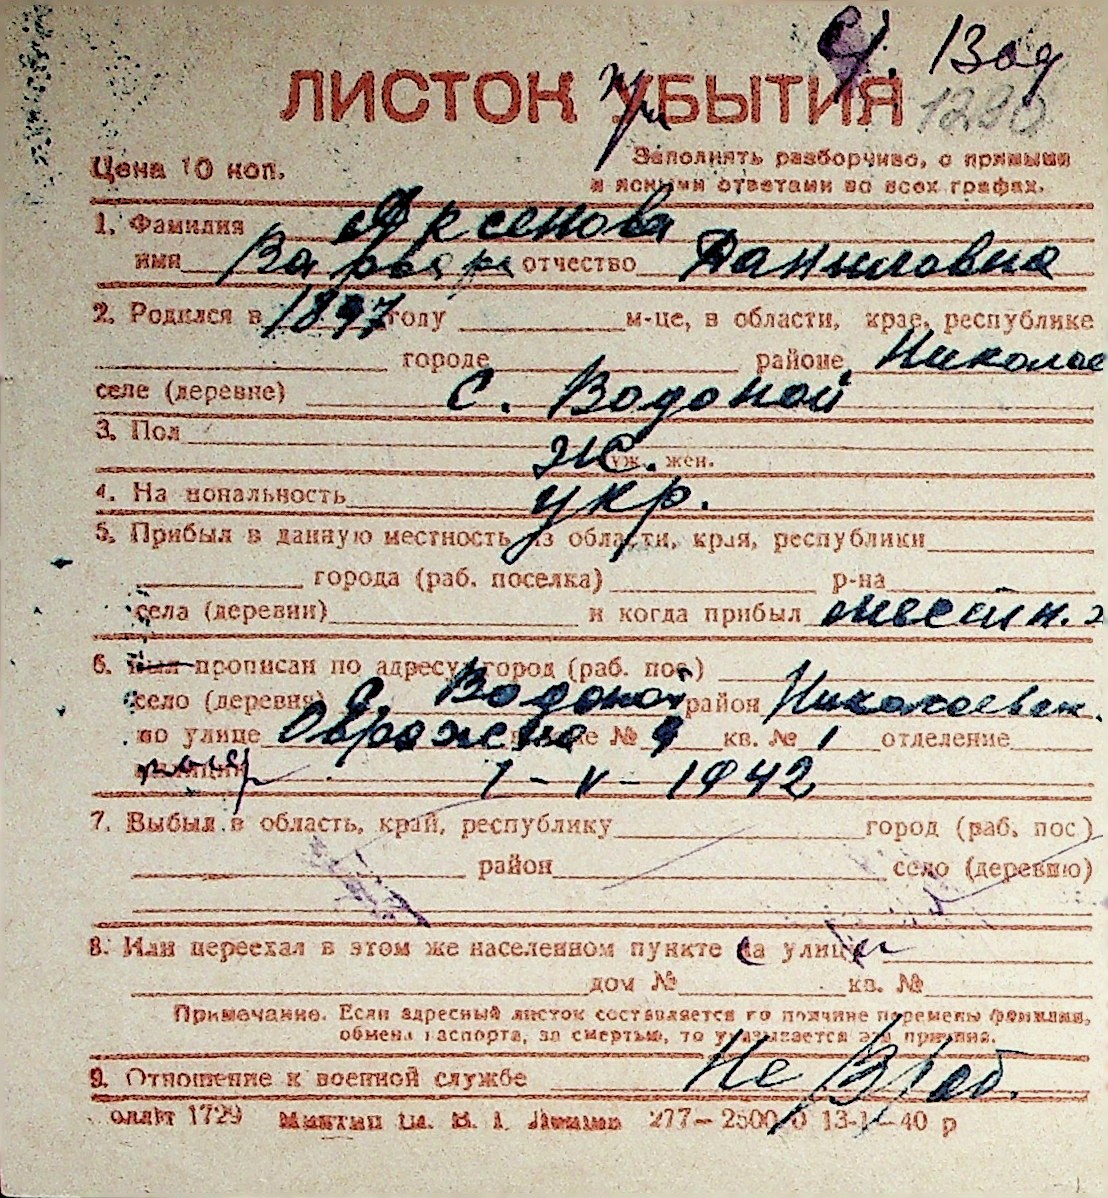 с. Вод
ЛИСТОК УБЫТИЯ 1290
Цена 10 коп. Заполнять разборчиво, с прямыми
и ясными ответами во всех графах.
1. Фамилия Аксенова
имя Варвара отчество Даниловна
2. Родился в 1897 году м-це, в области, крае, республике
городе районе Николае
селе (деревне) С. Водопой
3. Пол
Ж. муж. жен.
4. Национальность укр.
5. Прибыл в данную местность из области, края, республики
города (раб. поселка) р-на
села (деревни) и когда прибыл местн.
6. Был прописан по адресу: город (раб. пос.)
село (деревня) С. Водопой район Николаевск.
по улице Овражная № 9 кв. № 1 отделение
милиции 1-V-1942
7. Выбыл в область, край, республику город (раб. пос.)
район село (деревню)
8. Или переехал в этом же населенном пункте на улицу
дом № кв. №
Примечание. Если адресный листок составляется по причине перемены фамилии,
обмена паспорта, за смертью, то указывается эта причина.
9. Отношение к военной службе Не
1729 В. И. Ленина 277-2500 40 р